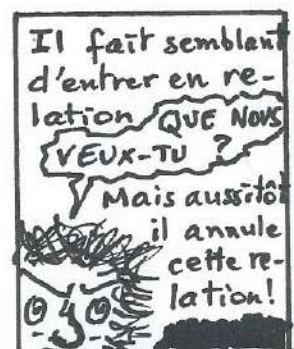 Il fait semblant
d'entrer en re-
lation
QUE NOUS
VEUX-TU ?
Mais aussitôt
il annule
cette re-
lation!